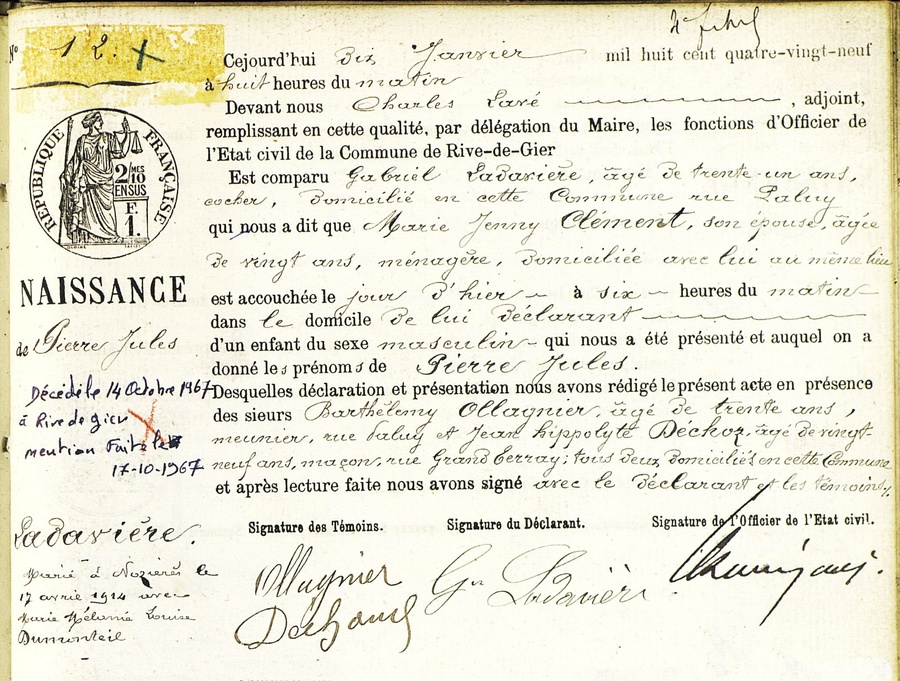 N° 12.
Cejourd'hui dix Janvier mil huit cent quatre-vingt-neuf
à huit heures du matin
Devant nous Charles Lavé, adjoint,
remplissant en cette qualité, par délégation du Maire, les fonctions d'Officier de
l'Etat civil de la Commune de Rive-de-Gier
Est comparu Gabriel Ladavière, âgé de trente-un ans,
cocher, domicilié en cette Commune rue Paluy
qui nous a dit que Marie Jenny Clément, son épouse, âgée
de vingt ans, ménagère, domiciliée avec lui au même lieu
est accouchée le jour d'hier à six heures du matin
dans le domicile de lui déclarant
d'un enfant du sexe masculin qui nous a été présenté et auquel on a
donné les prénoms de Pierre Jules.
Desquelles déclaration et présentation nous avons rédigé le présent acte en présence
des sieurs Barthélemy Ollagnier, âgé de trente ans,
meunier, rue Paluy et Jean Hippolyte Déchoz, âgé de vingt
neuf ans, maçon, rue Grand Cerray; tous deux domiciliés en cette Commune
et après lecture faite nous avons signé avec le déclarant et les témoins.
Signature des Témoins. Signature du Déclarant. Signature de l'Officier de l'Etat civil.
Ollagnier
Ladavière
REPUBLIQUE FRANÇAISE
2/10
MES
EN SUS
F.
1.
NAISSANCE
de Pierre Jules
Décédé le 14 Octobre 1967
à Rive de gier
mention Faite le
17-10-1967
Ladavière.
Marié à Nozières le
17 avril 1914 avec
Marie Mélanie Louise
Dumonteil